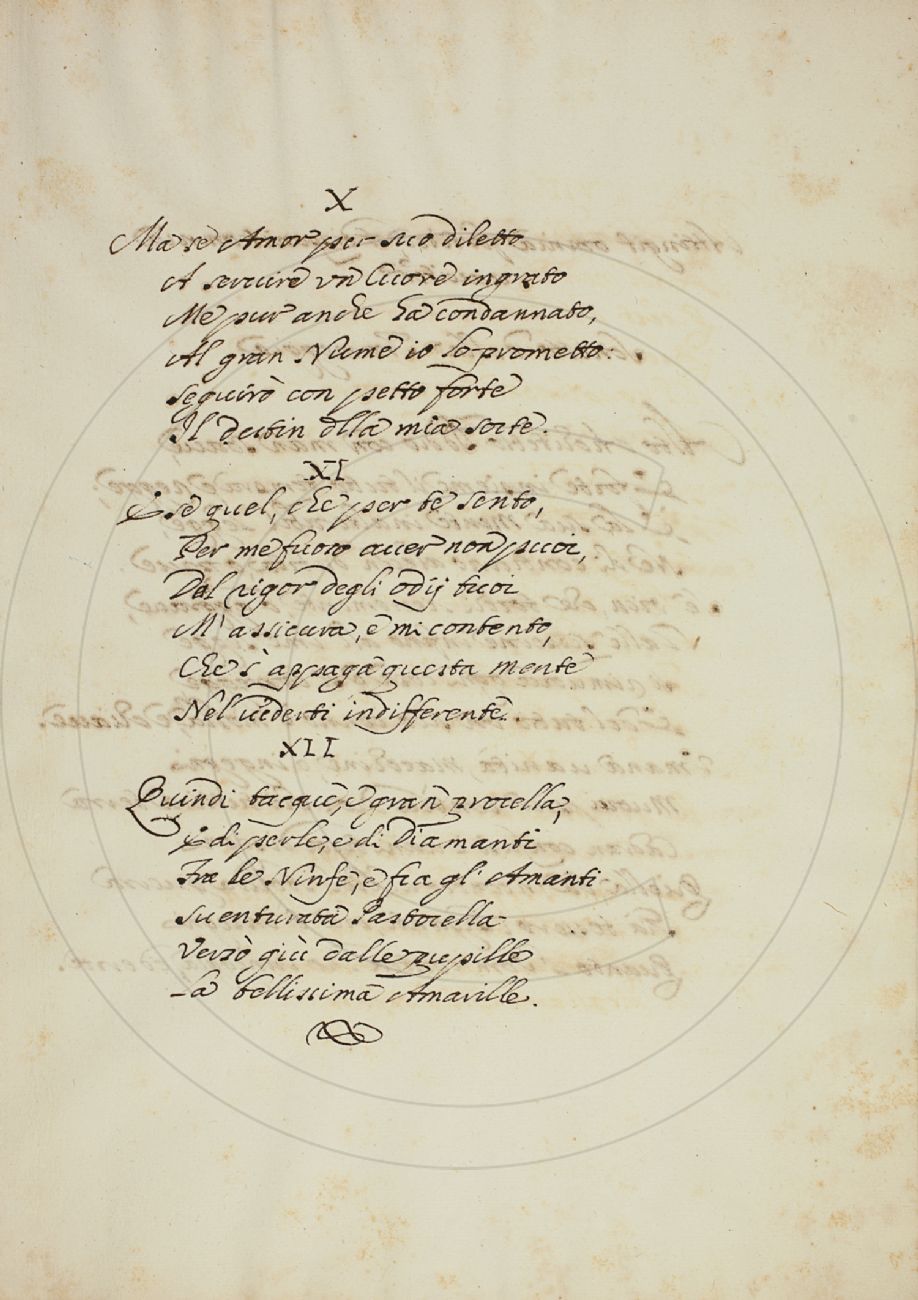 X
Ma se Amor per suo diletto
A servire vn Cuore ingrato
Me pur anche ha condannato,
Al gran Nume io lo prometto:
Seguirò con petto forte
Il destin della mia sorte.
XI
E se quel, che per te sento,
Per me fuoro auer non puoi,
Del rigor degli odij tuoi
M'assicura, e mi contento,
Che s'appaga questa mente
Nel uederti indifferente.
XII
Quindi tacque, e gran procella,
E di perle, e di Diamanti
Fra le Ninfe, e fra gl'Amanti
Suenturata Pastorella
Versò giù dalle pupille
La bellissima Amarille.